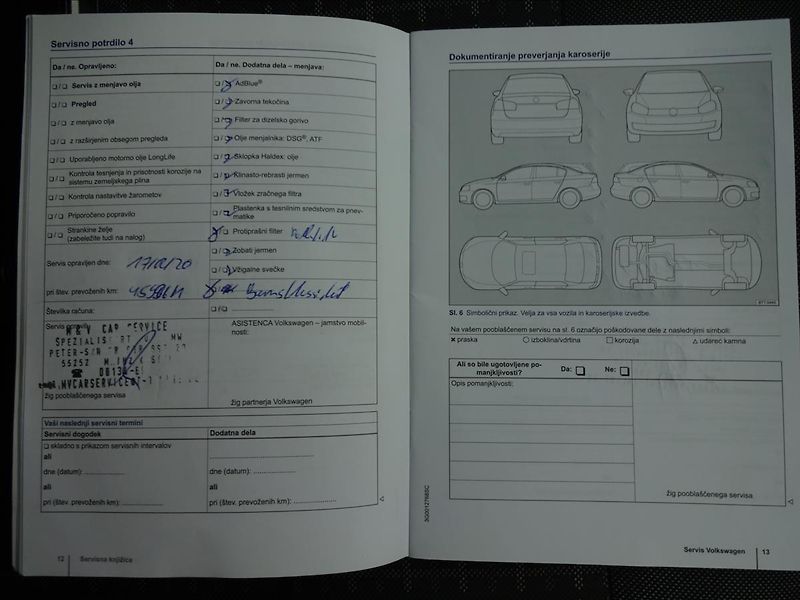 Servisno potrdilo 4
Da / ne. Opravljeno:
Da / ne. Dodatna dela – menjava:
❏ / ❏ Servis z menjavo olja
❏ / AdBlue®
❏ / ❏ Pregled
❏ / Zavorna tekočina
❏ / ❏ z menjavo olja
❏ / Filter za dizelsko gorivo
❏ / ❏ z razširjenim obsegom pregleda
❏ / Olje menjalnika: DSG®, ATF
❏ / ❏ Uporabljeno motorno olje LongLife
❏ / Sklopka Haldex: olje
❏ / ❏ Kontrola tesnjenja in prisotnosti korozije na
sistemu zemeljskega plina
❏ / Klinasto-rebrasti jermen
❏ / ❏ Kontrola nastavitve žarometov
❏ / Vložek zračnega filtra
❏ / ❏ Priporočeno popravilo
❏ / Plastenka s tesnilnim sredstvom za pnev-
matike
❏ / ❏ Strankine želje
(zabeležite tudi na nalog)
❏ Protiprašni filter
❏ / Zobati jermen
Servis opravljen dne:
❏ / Vžigalne svečke
pri štev. prevoženih km:
Številka računa:
❏ / ❏ ....................
Servis opravil:
M & V CAR SERVICE
PETER-S
55252
MVCARSERVICE
žig pooblaščenega servisa
ASISTENCA Volkswagen – jamstvo mobil-
nosti:
žig partnerja Volkswagen
Vaši naslednji servisni termini
Servisni dogodek
Dodatna dela
❏ skladno s prikazom servisnih intervalov
ali
dne (datum): ....................
dne (datum): ....................
ali
ali
pri (štev. prevoženih km): ....................
pri (štev. prevoženih km): ....................
12 Servisna knjižica
Dokumentiranje preverjanja karoserije
Sl. 6 Simbolični prikaz. Velja za vsa vozila in karoserijske izvedbe.
Na vašem pooblaščenem servisu na sl. 6 označijo poškodovane dele z naslednjimi simboli:
× praska
○ izboklina/vdrtina
□ korozija
△ udarec kamna
Ali so bile ugotovljene po-
manjkljivosti?
Da: ❏
Ne: ❏
Opis pomanjkljivosti:
žig pooblaščenega servisa
3G0012768SC
Servis Volkswagen 13